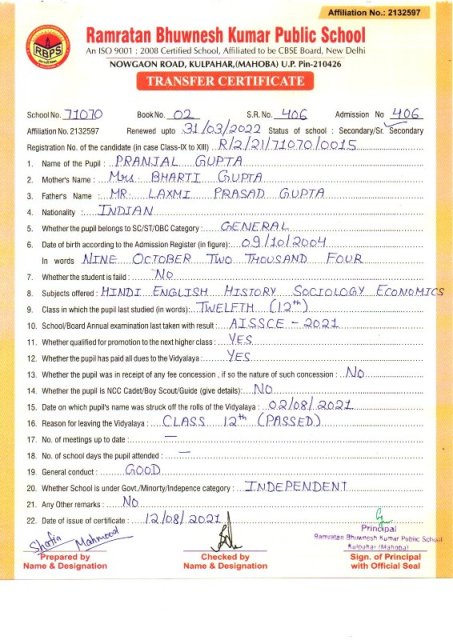 Affiliation No.: 2132597
RBPS
Ramratan Bhuwnesh Kumar Public School
An ISO 9001 : 2008 Certified School, Affiliated to be CBSE Board, New Delhi
NOWGAON ROAD, KULPAHAR,(MAHOBA) U.P. Pin-210426
TRANSFER CERTIFICATE
School No. 71070 Book No. 02 S.R. No. 406 Admission No 406
Affiliation No. 2132597 Renewed upto 31/03/2022 Status of school : Secondary/Sr. Secondary
Registration No. of the candidate (in case Class-IX to XIII) R/2/21/71070/0015
1. Name of the Pupil : PRANJAL GUPTA
2. Mother's Name : Mrs. BHARTI GUPTA
3. Father's Name : MR. LAXMI PRASAD GUPTA
4. Nationality : INDIAN
5. Whether the pupil belongs to SC/ST/OBC Category : GENERAL
6. Date of birth according to the Admission Register (in figure): 09/10/2004
In words NINE OCTOBER TWO THOUSAND FOUR
7. Whether the student is faild : No
8. Subjects offered : HINDI ENGLISH HISTORY SOCIOLOGY ECONOMICS
9. Class in which the pupil last studied (in words): TWELFTH (12th)
10. School/Board Annual examination last taken with result : AISSCE - 2021
11. Whether qualified for promotion to the next higher class : YES
12. Whether the pupil has paid all dues to the Vidyalaya : YES
13. Whether the pupil was in receipt of any fee concession , if so the nature of such concession : No
14. Whether the pupil is NCC Cadet/Boy Scout/Guide (give details): No
15. Date on which pupil's name was struck off the rolls of the Vidyalaya : 02/08/2021
16. Reason for leaving the Vidyalaya : CLASS 12th (PASSED)
17. No. of meetings up to date : —
18. No. of school days the pupil attended : —
19. General conduct : GOOD
20. Whether School is under Govt./Minorty/Indepence category : INDEPENDENT
21. Any Other remarks : No
22. Date of issue of certificate : 12/08/2021
Principal
Ramratan Bhuwnesh Kumar Public School
Kulpahar (Mahoba)
Mahmood
Prepared by Checked by Sign. of Principal
Name & Designation Name & Designation with Official Seal